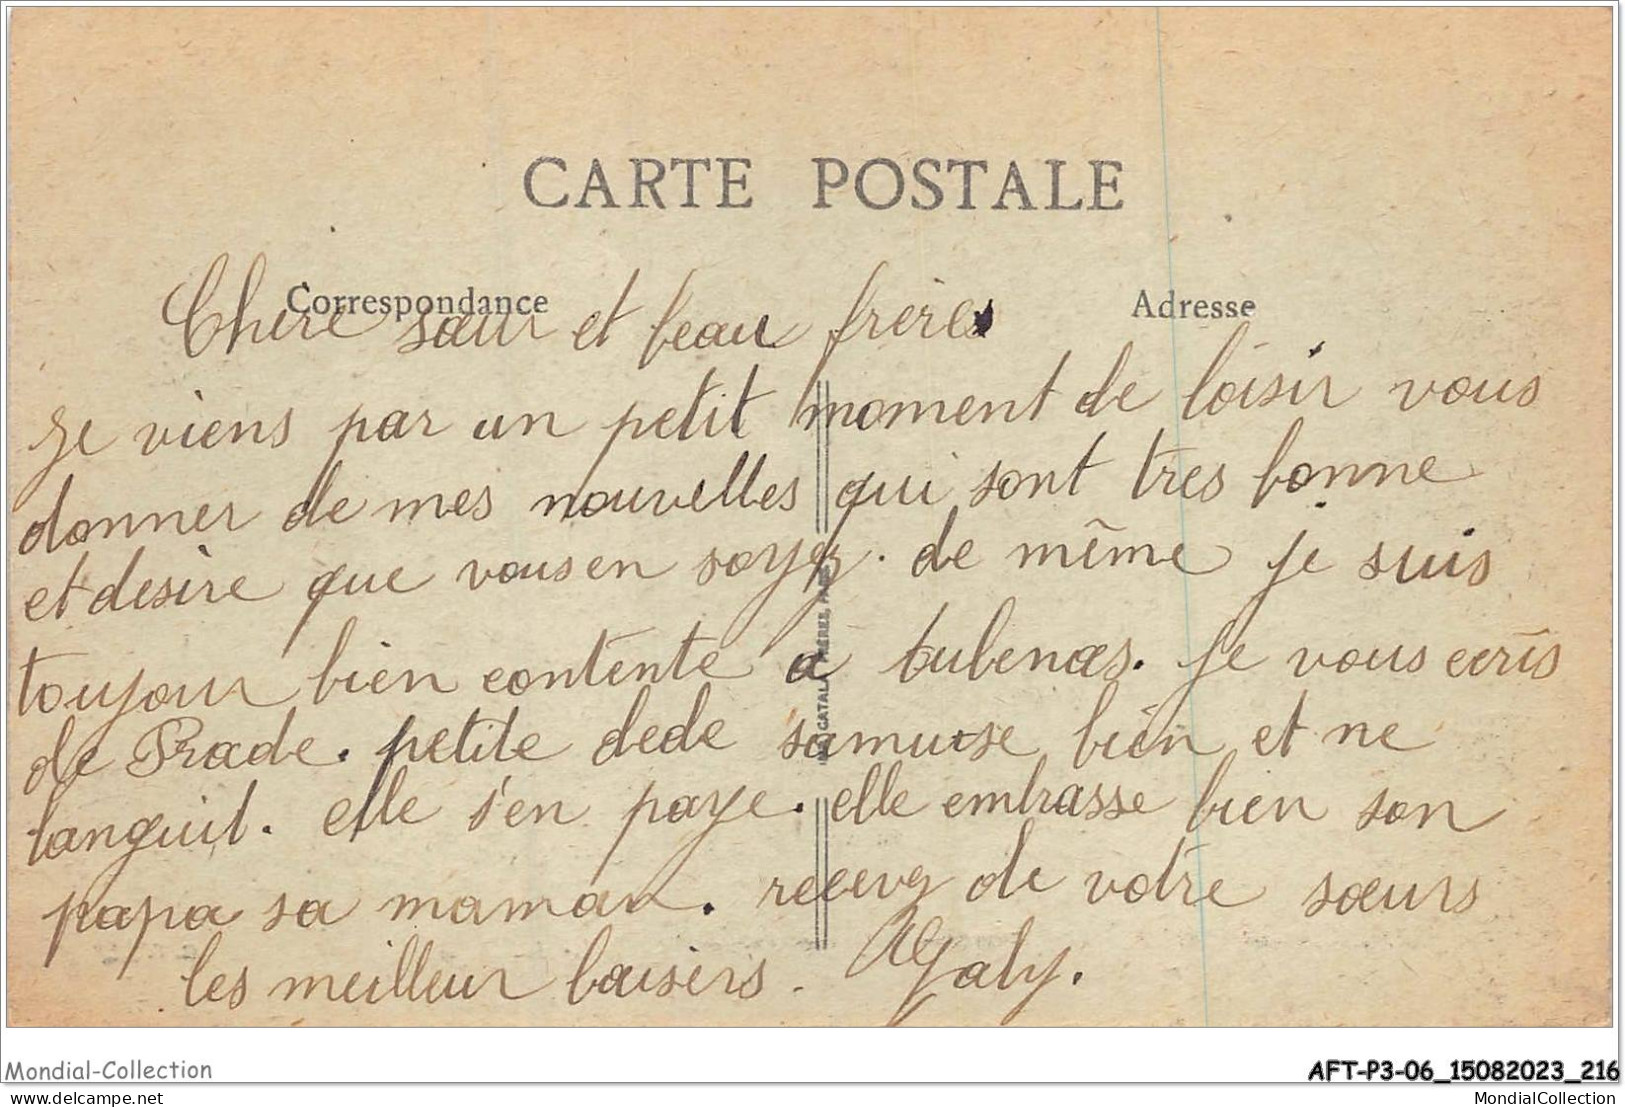 CARTE POSTALE
Correspondance
Adresse
Chere sœur et beau frères
Je viens par un petit moment de loisir vous
donner de mes nouvelles qui sont tres bonne
et desire que vous en soyez. de même je suis
toujour bien contente a bubenas. je vous ecris
de Prade. petite dede samuse bien et ne
languit. elle s'en paye. elle embrasse bien son
papa sa maman. recevez de votre sœurs
les meilleur baisers. Galy.
IMP. CATALA FRERES, PARIS
Mondial-Collection
AFT-P3-06_15082023_216
delcampe.net
MondialCollection